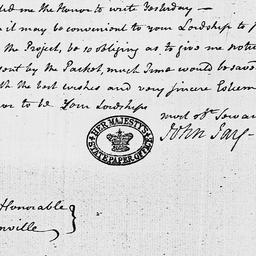 did me the Honor to write Yesterday —
it may be convenient to your Lordship to p
the Project, be so obliging as to give me notice
sent by the Packet, much Time would be saved
th the best wishes and very sincere Esteem
nor to be Your Lordships
most obt Servan
John Jay —
HER MAJESTY'S
STATE PAPER OFFICE
Honorable
nville